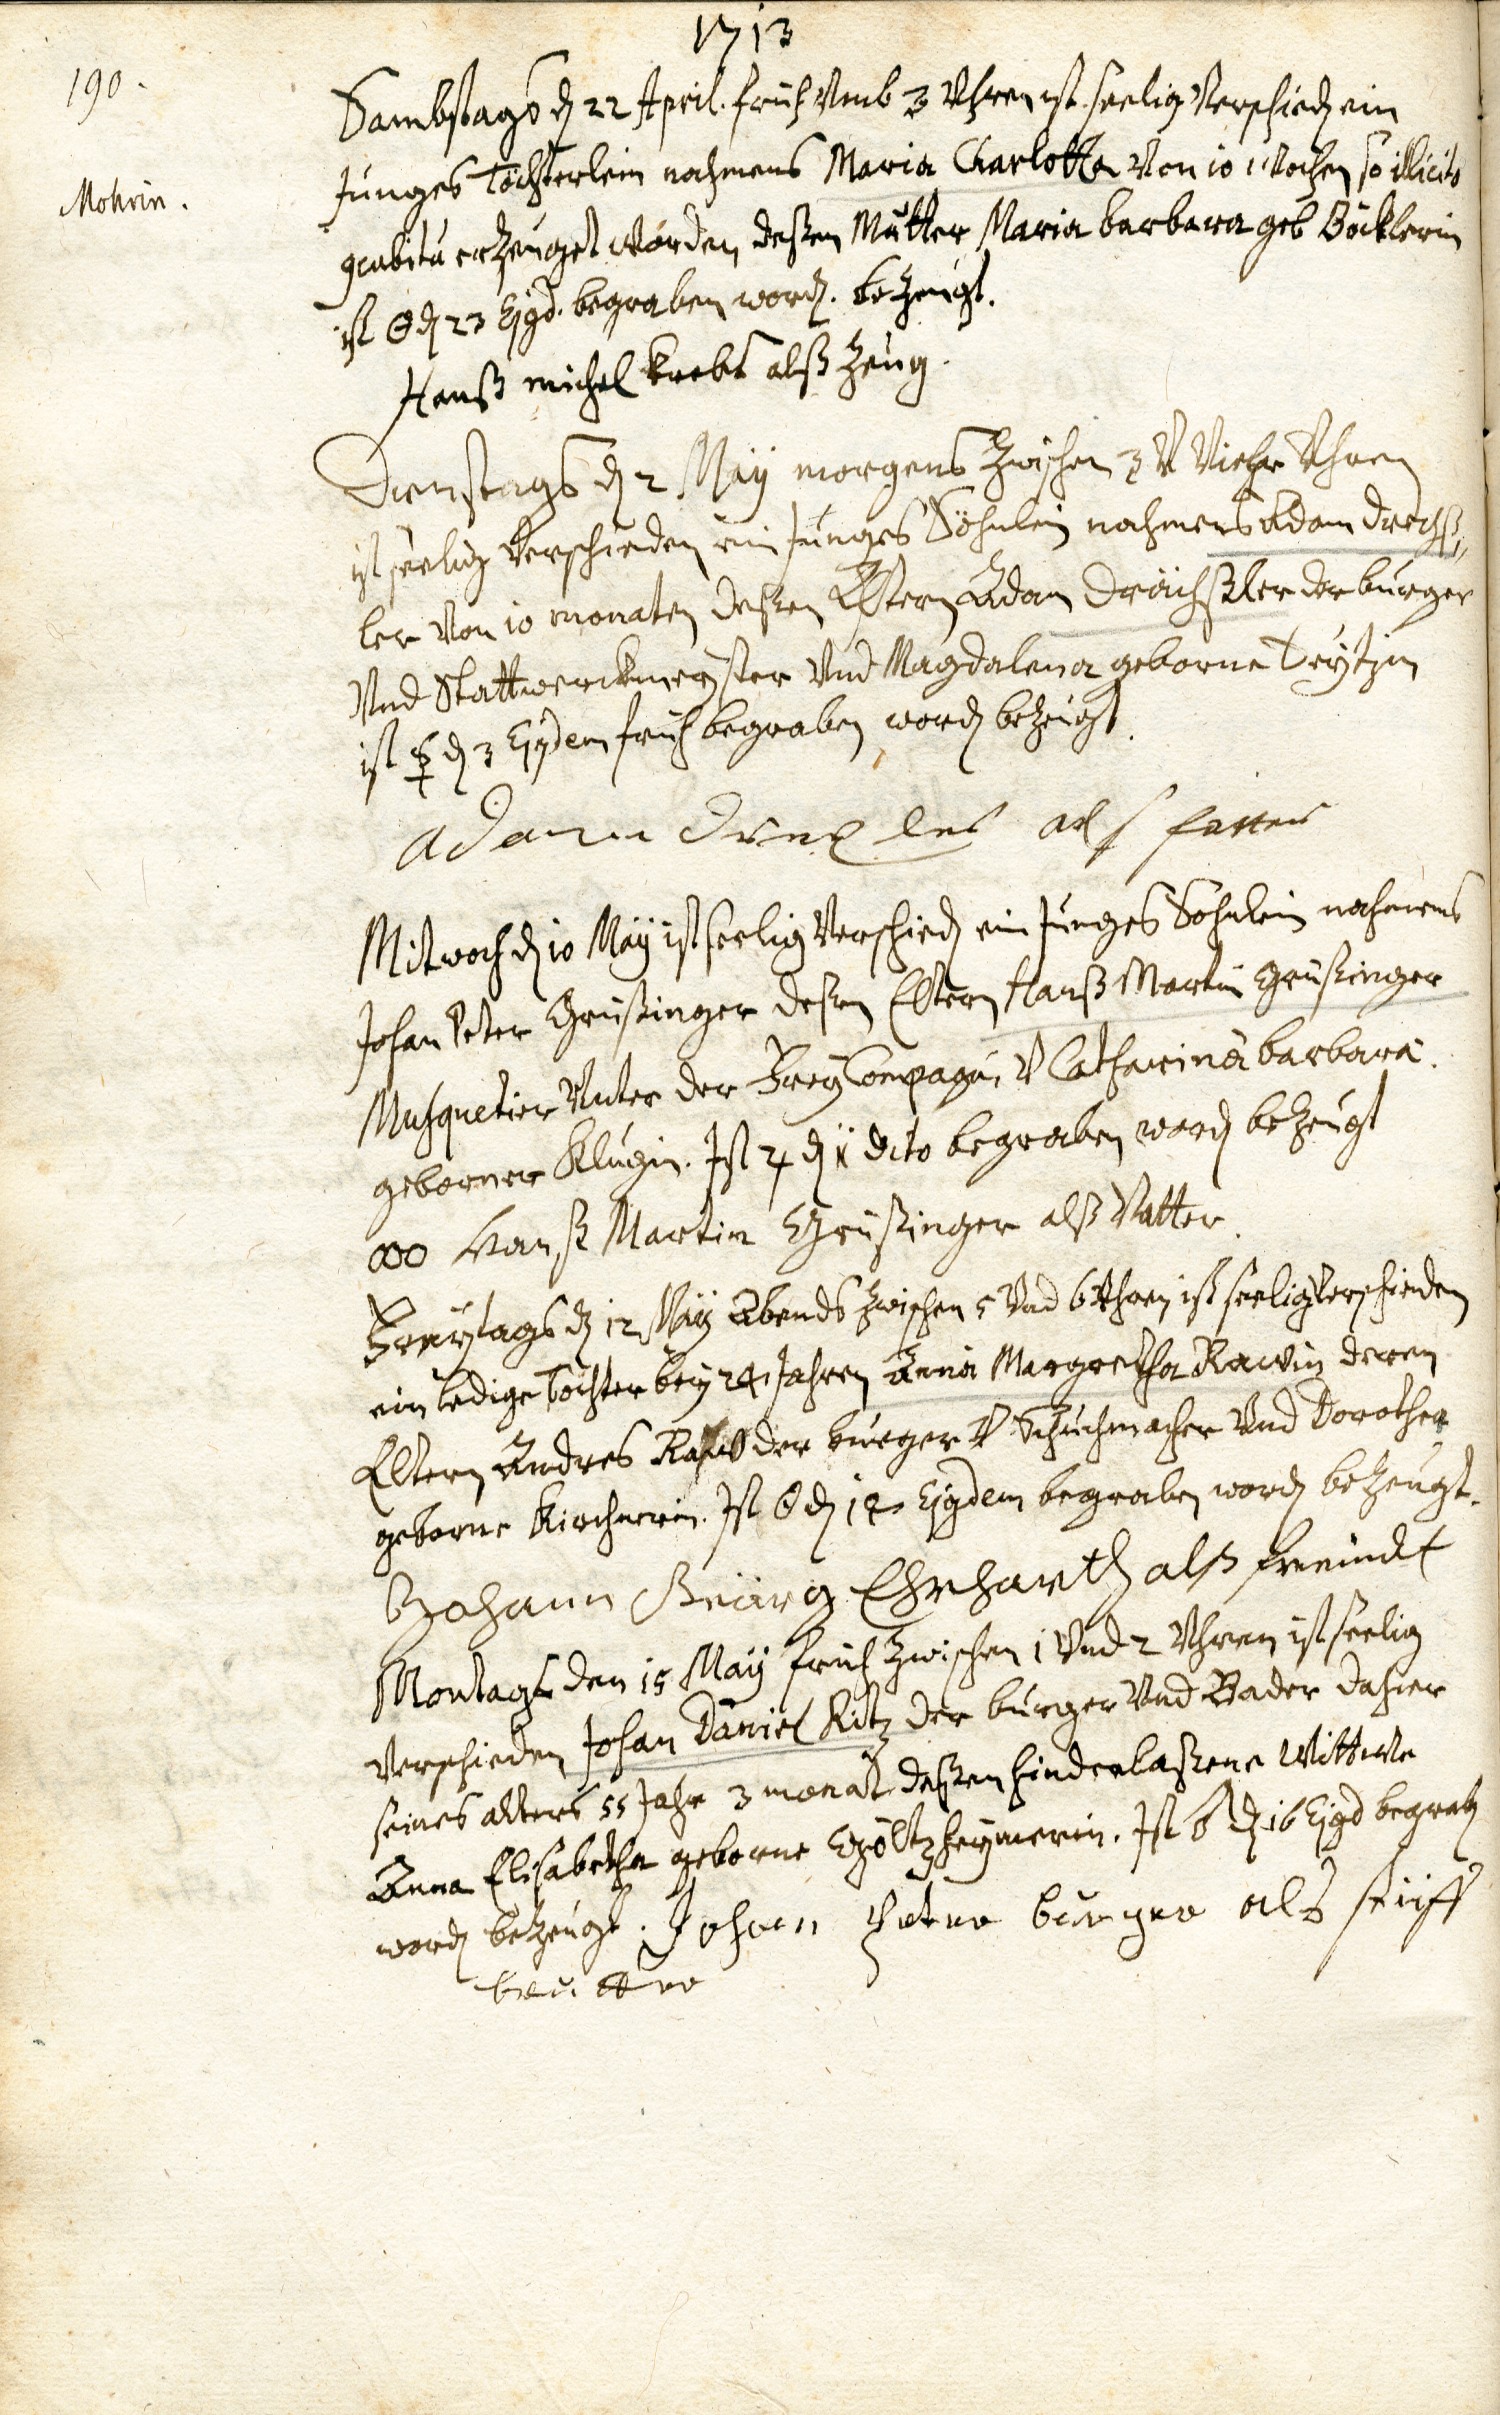 1713
190.
Sambstags d 22 April. früh Umb 3 Uhren ist seelig Verschied ein
Mohrin.
Junges Töchterlein nahmens Maria Charlotta Von 10 Wochen so illicito
9cubitu erzeuget worden, deßen Mutter Maria barbara geb Böcklerin
ist ☉ d 23 Ejgd. begraben word. bezeugt.
Hanß michel krebs alß Zeug.
Dienstags d 2 Maÿ morgens Zwischen 3 V Viehr Uhren
ist seelig Verschieden ein Junges Söhnlein nahmens Adam Drechß,
ler Von 10 monaten deßen Eltern Adam Drächßler der burger
Und Stattwerckmeyster Und Magdalena geborne
ist ☿ d 3 Ejgdem früh begraben word bezeugt.
adam drexler als fatter
Mitwoch d 10 Maÿ ist seelig Verschied ein Junges Söhnlein nahmens
Johan Peter Grüßinger deßen Eltern Hanß Martin Grüßinger
Musquetier Unter der Frey Compagni, V Catharina barbara.
geborner Klugin. Ist ♃ d 11 dito begraben word bezeugt
ooo Hanß Martin Grüßinger alß Vatter.
Freÿtags d 12 Maÿ Abends Zwischen 5 Und 6 Uhren ist seelig Verschieden
ein ledige Tochter beÿ 24 Jahren Anna Margretha Rawin deren
Eltern Andres Raw der burger V Schuchmacher Und Dorothea
geborne Kirchnerin. Ist ☉ d 14 Ejgdem begraben word bezeugt.
Johann Geörg Ehrharth alß freündt
Montags den 15 Maÿ früh Zwischen 1 Und 2 Uhren ist seelig
Verschieden Johan Daniel Kitz der burger Und Bader dahier
seines alters 55 Jahr 3 monat deßen hinderlaßene Wittwe
Anna Elisabetha geborne Göltzheymerin. Ist ♂ d 16 Ejgd begrab
word bezeugt. Johan Peter burger als stüff
bruttr